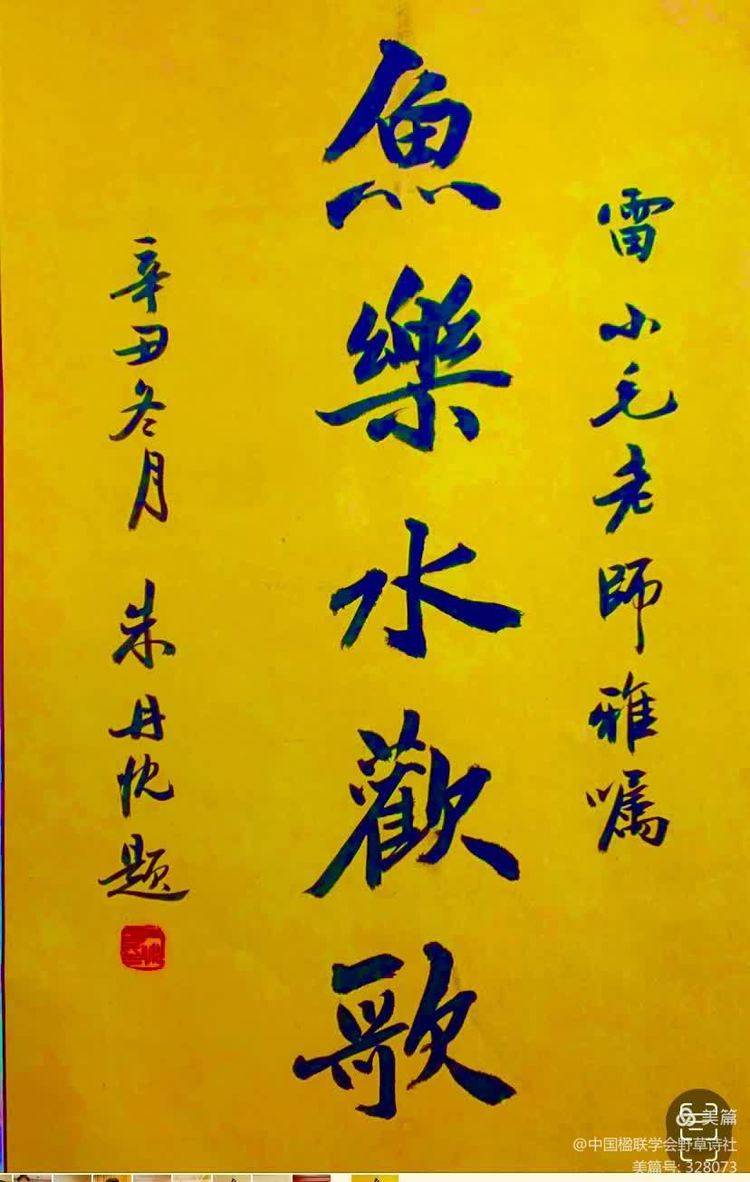 雷小毛老師雅嘱
魚樂水歡歌
辛丑冬月 朱丹忱題
美篇
@中国楹联学会野草诗社
美篇号: 328073